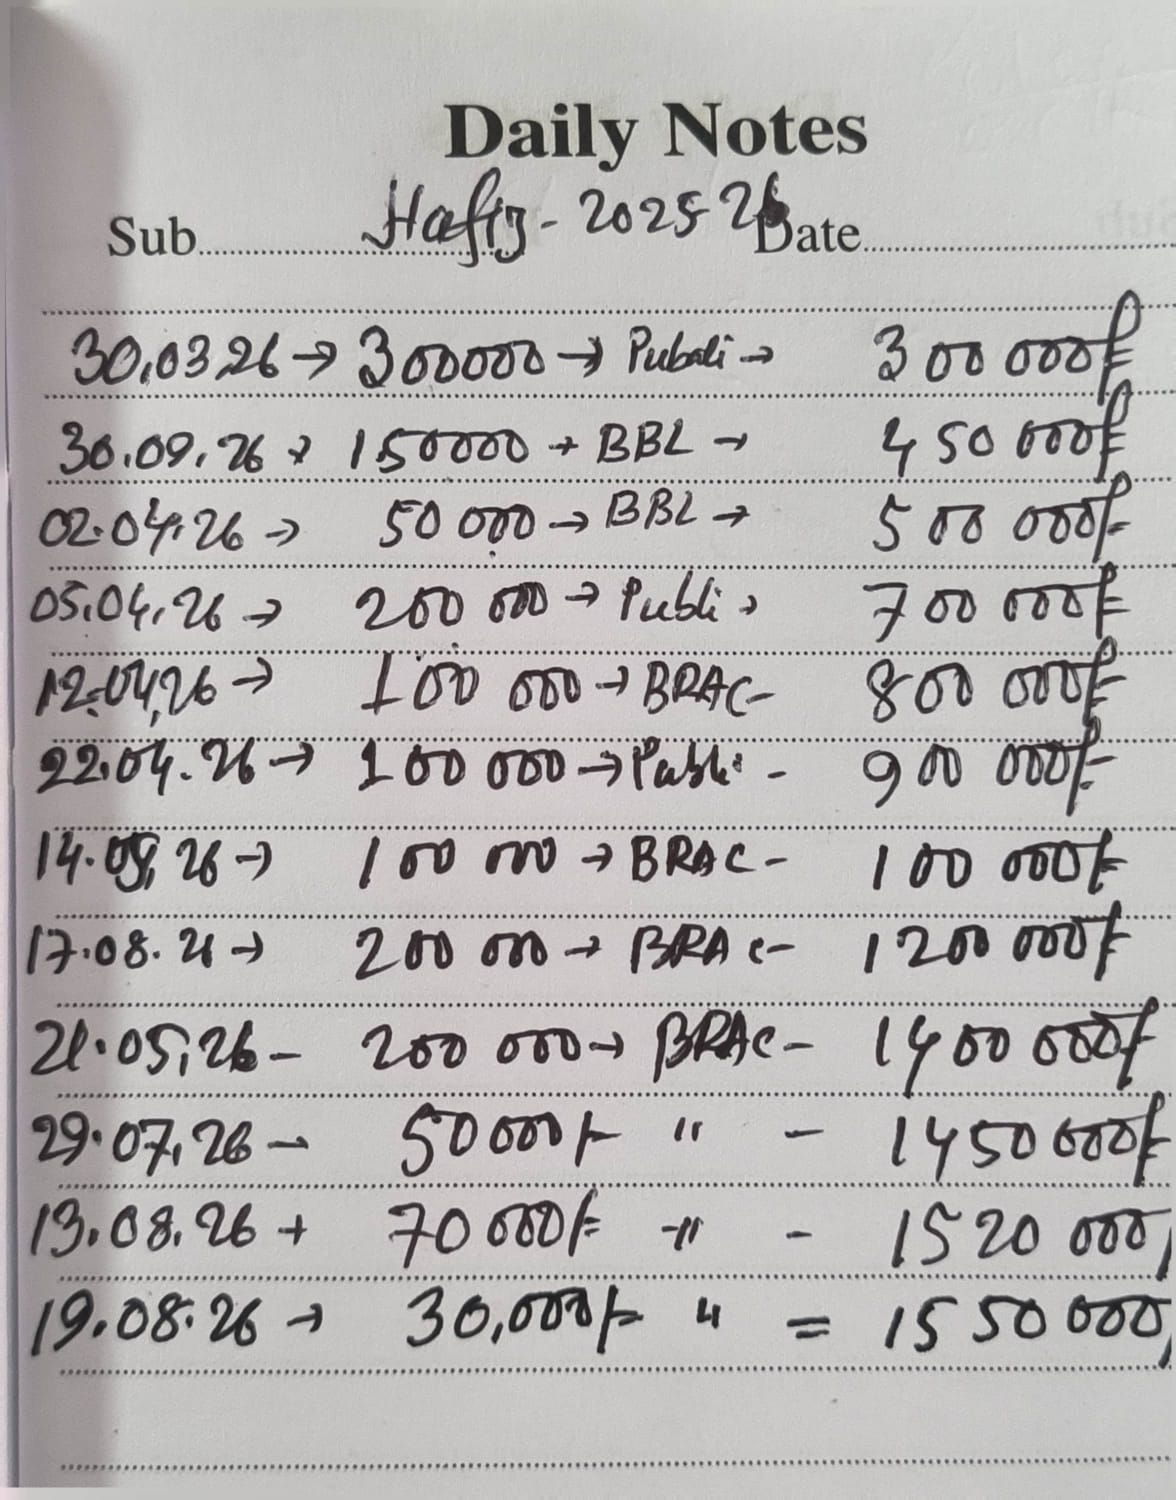 Daily Notes
Sub. Hafiz - 2025-26 Date
30.03.26 → 300000 → Pubali → 300 000/=
30.09.26 → 150000 → BBL → 450 000/=
02.04.26 → 50 000 → BBL → 500 000/=
05.04.26 → 200 000 → Publi → 700 000/=
12.04.26 → 100 000 → BRAC - 800 000/=
22.04.26 → 100 000 → Publi - 900 000/=
14.05.26 → 100 000 → BRAC - 100 000/=
17.08.26 → 200 000 → BRAC - 1200 000/=
21.05.26 - 200 000 → BRAC - 1400 000/=
29.07.26 - 50 000/= " - 1450 000/=
13.08.26 → 70 000/= -"- - 1520 000/
19.08.26 → 30,000/= " = 1550 000/